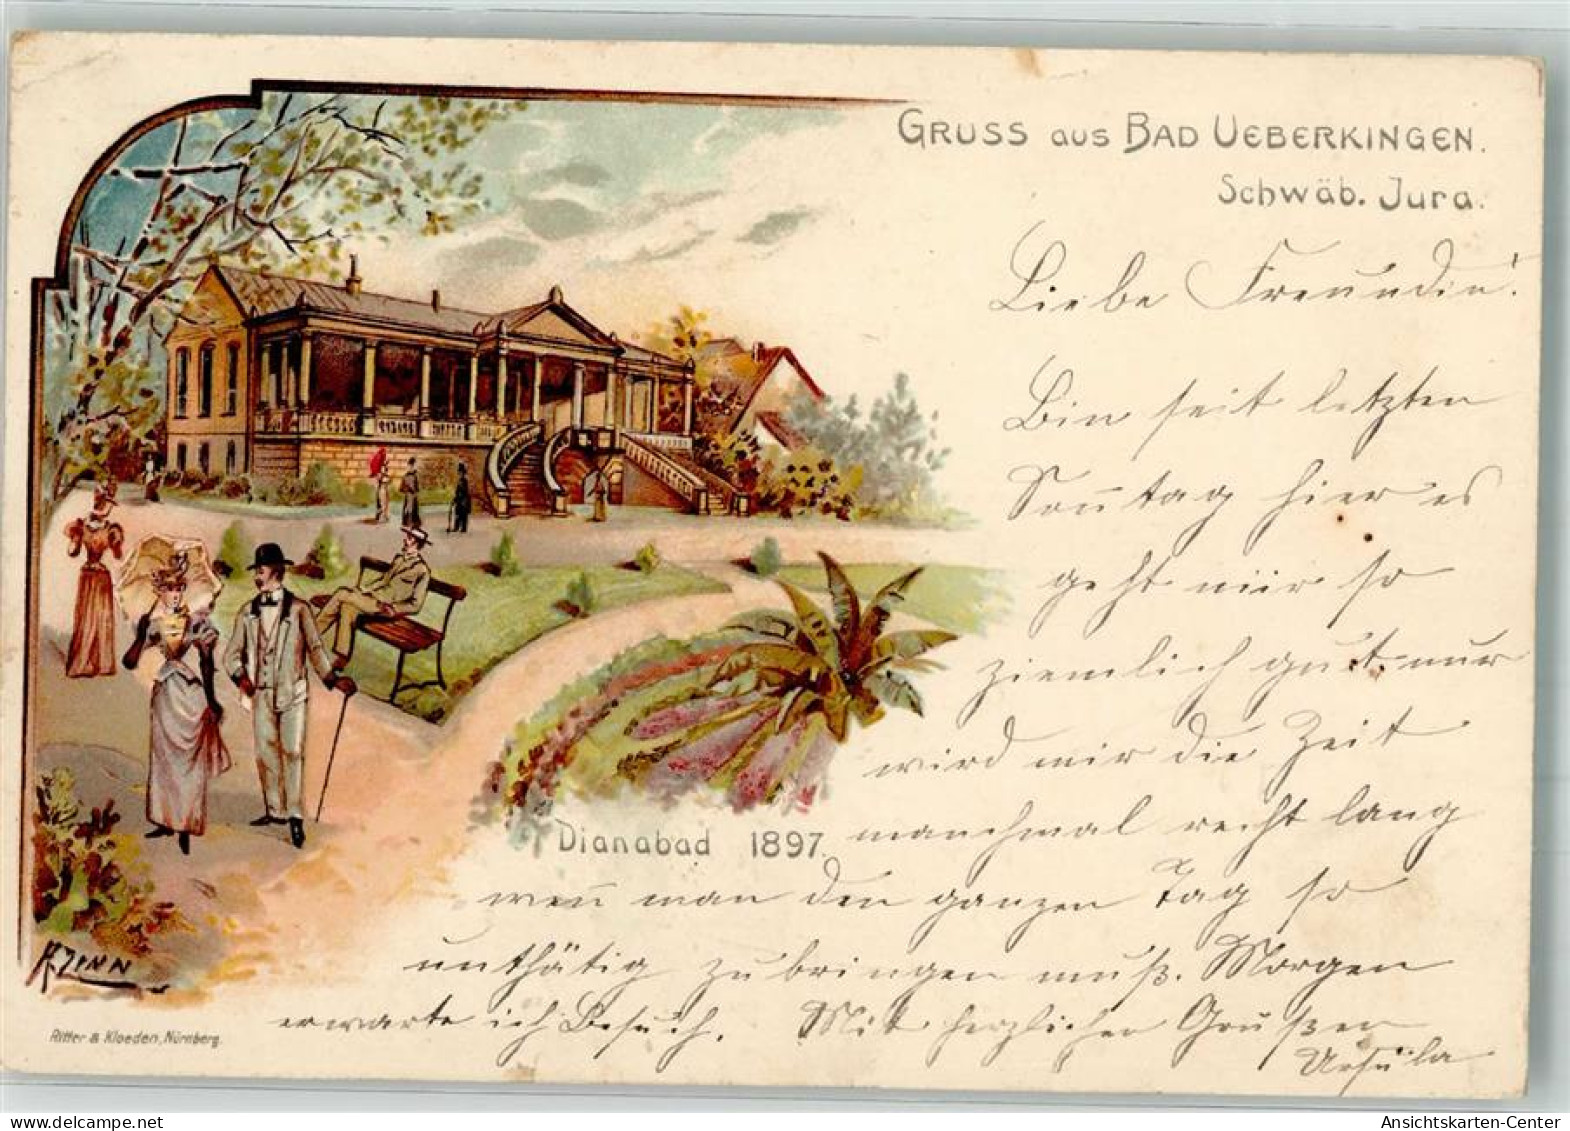 GRUSS aus BAD UEBERKINGEN.
Schwäb. Jura.
Liebe Freundin!
Bin seit letzten
Sonntag hier es
geht mir so
ziemlich gut nur
wird mir die Zeit
manchmal recht lang
Dianabad 1897.
wenn man den ganzen Tag so
unthätig zubringen muß. Morgen
erwarte ich Besuch. Mit herzlichen Grüßen
Ursula
A. ZINN
Ritter & Kloeden, Nürnberg.
Ansichtskarten-Center